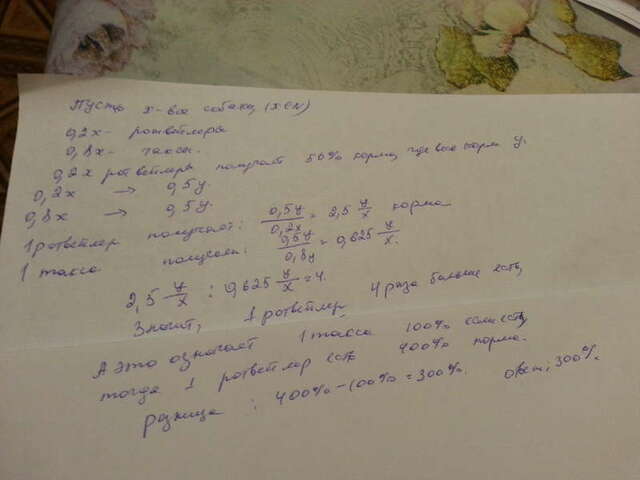 Пусть x - все собаки, (x ∈ N)
0,2x - ротвейлеры
0,8x - таксы.
0,2x ротвейлеры получают 50% корма, где все корм y.
0,2x → 0,5y.
0,8x → 0,5y.
1 ротвейлер получает: 0,5y/0,2x = 2,5 y/x корма
1 такса получает: 0,5y/0,8y = 0,625 y/x.
2,5 y/x : 0,625 y/x = 4.
Значит, 1 ротвейлер 4 раза больше ест,
А это означает 1 такса 100% если ест,
тогда 1 ротвейлер ест 400% корма.
разница: 400% - 100% = 300%. Ответ: 300%.